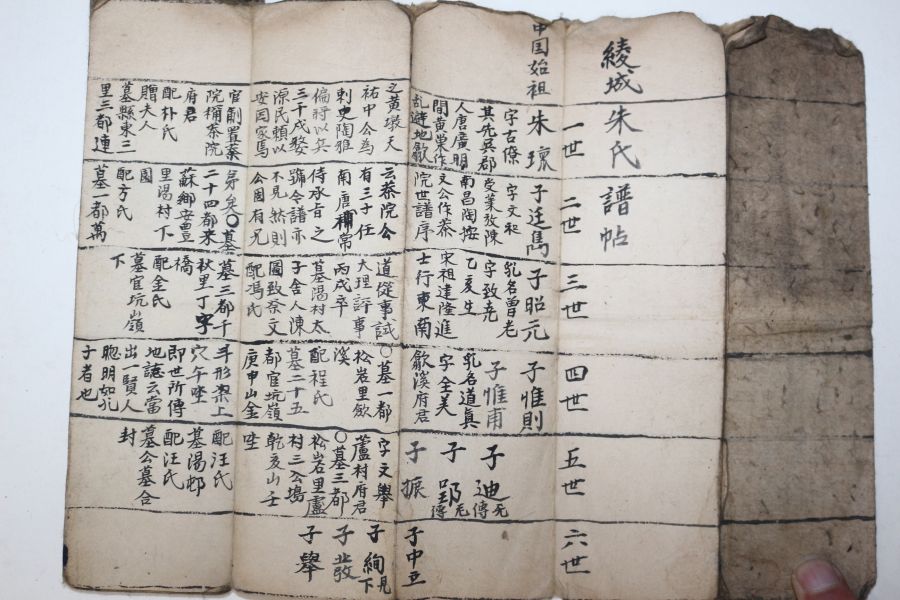 綾城朱氏譜帖
中国始祖
一世
朱瓌
字古僚
其先吳郡
人唐廣明
間黃榮作
乱避地歙
之黃墩天
祐中公為
刺史陶雅
偏將以兵
三千戍婺
源民賴以
安因家焉
官制置茶
院稱茶院
府君
配朴氏
贈夫人
墓縣東三
里三都連
二世
子廷雋
字文和
受業於陳
南昌陶按
文公作茶
院世譜序
云茶院公
有三子仕
南唐補常
侍承旨之
號今譜亦
不見然則
公固有兄
弟矣〇墓
二十四都來
蘇鄉安豊
里湯村下
園
配方氏
墓一都萬
三世
子昭元
乳名曾老
字致堯
乙亥生
宋祖建隆進
士行東南
道從事試
大理評事
丙戌卒
墓湯村太
子舍人陳
圖致祭文
配馮氏
墓三都千
秋里丁字
橋
配金氏
墓官坑嶺
下
四世
子惟則
子惟甫
乳名道真
字全美
歙溪府君
〇墓一都
松岩里歙
溪
配程氏
墓二十五
都官坑嶺
庚申山金
斗形梁上
穴午坐
即世所傳
地讖云當
出一賢人
聰明如孔
子者也
五世
子迪
无傳
子郢
无傳
子振
字文舉
蘆村府君
〇墓三都
松岩里盧
村三公塢
乾亥山壬
坐
配汪氏
墓湯邨
配汪氏
墓公墓合
封
六世
子中立
子絢
見下
子發
子舉